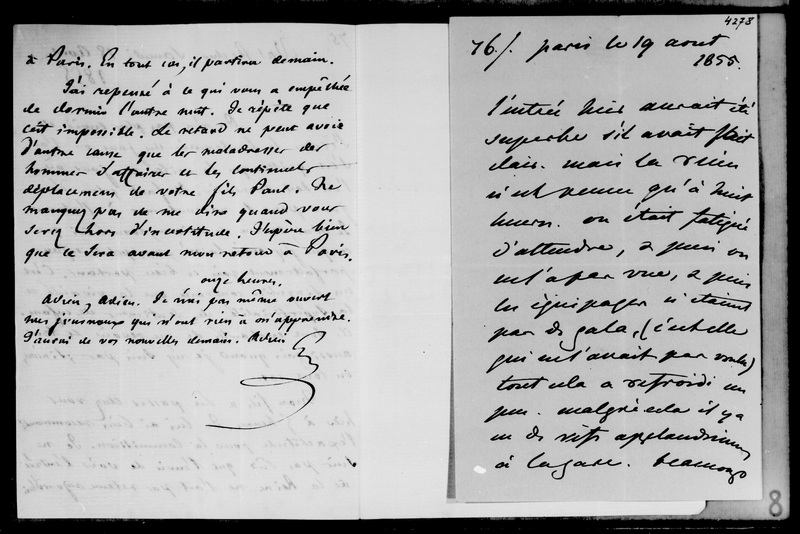 à Paris. En tout cas, il partira demain.
J'ai repensé à ce qui vous a empêchée
de dormir l'autre nuit. Je répète que
c'est impossible. Le retard ne peut avoir
d'autre cause que les maladresses des
hommes d'affaires et les continuels
déplacemens de votre fils Paul. Ne
manquez pas de me dire quand vous
serez hors d'incertitude. J'espère bien
que ce sera avant mon retour à Paris.
onze heures.
Adieu, Adieu. Je n'ai pas même ouvert
mes journaux qui n'ont rien à m'apprendre.
J'aurai de vos nouvelles demain. Adieu
G
4278
76/. paris le 19 aout
1855.
l'entrée hier aurait été
superbe s'il avait fait
clair. mais la reine
n'est venue qu'à huit
heures. on était fatigué
d'attendre, & puis on
ne l'a pas vue, & puis
les équipages n'étaient
pas de gala, (c'est elle
qui ne l'avait pas voulu)
tout cela a refroidi un
peu. malgré cela il y a
eu de vifs applaudissemens
à la gare. beaucoup
8